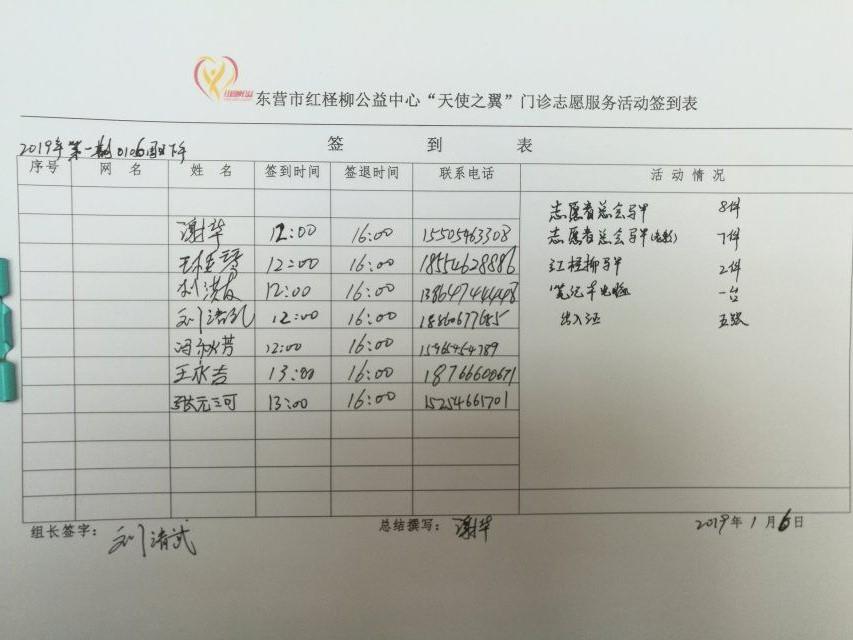 东营市红柽柳公益中心“天使之翼”门诊志愿服务活动签到表
签 到 表
2019年第一期0106周日下午
序号 网 名 姓 名 签到时间 签退时间 联系电话 活 动 情 况
志愿者总会马甲 8件
谢华 12:00 16:00 15505463308
志愿者总会马甲 7件
12:00 16:00 18554628886
红柽柳马甲 2件
12:00 16:00
笔记本电脑 一台
12:00 16:00
出入证 五张
冯秋芳 12:00 16:00
王永吉 13:00 16:00 18766600671
张元三可 13:00 16:00 15254661701
组长签字: 总结撰写: 谢华 2019年1月6日